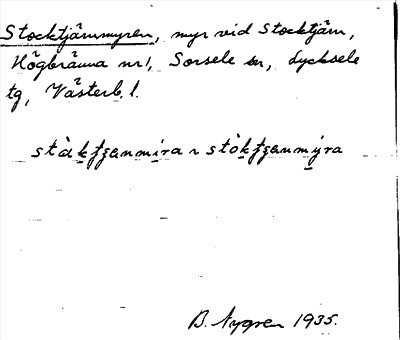 Stocktjärnmyren, myr vid Stocktjärn,
Högbränna nr 1, Sorsele sn, Lycksele
tg, Västerb. l.
B. Nygren 1935.